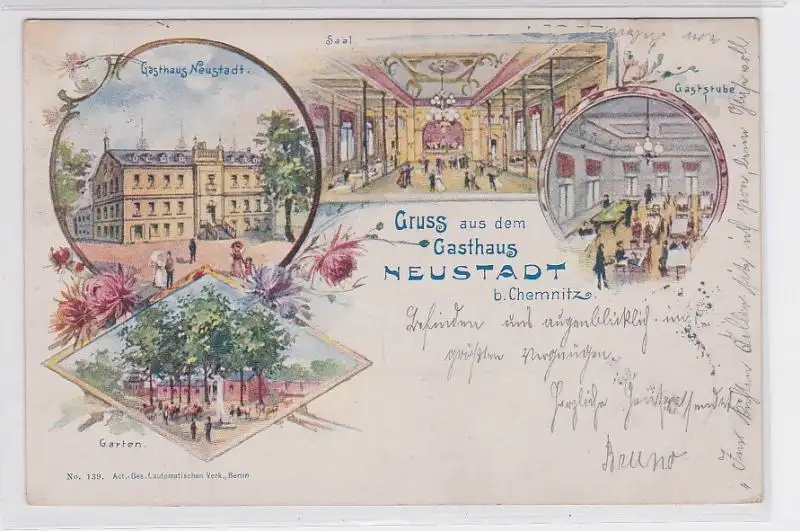 Gasthaus Neustadt.
Saal
Gaststube
Gruss aus dem
Gasthaus
NEUSTADT
b. Chemnitz.
Befinden uns augenblicklich im
größten Vergnügen.
Herzliche Grüße sendet
Bruno
Garten.
No. 139. Act.-Ges. f. automatischen Verk., Berlin